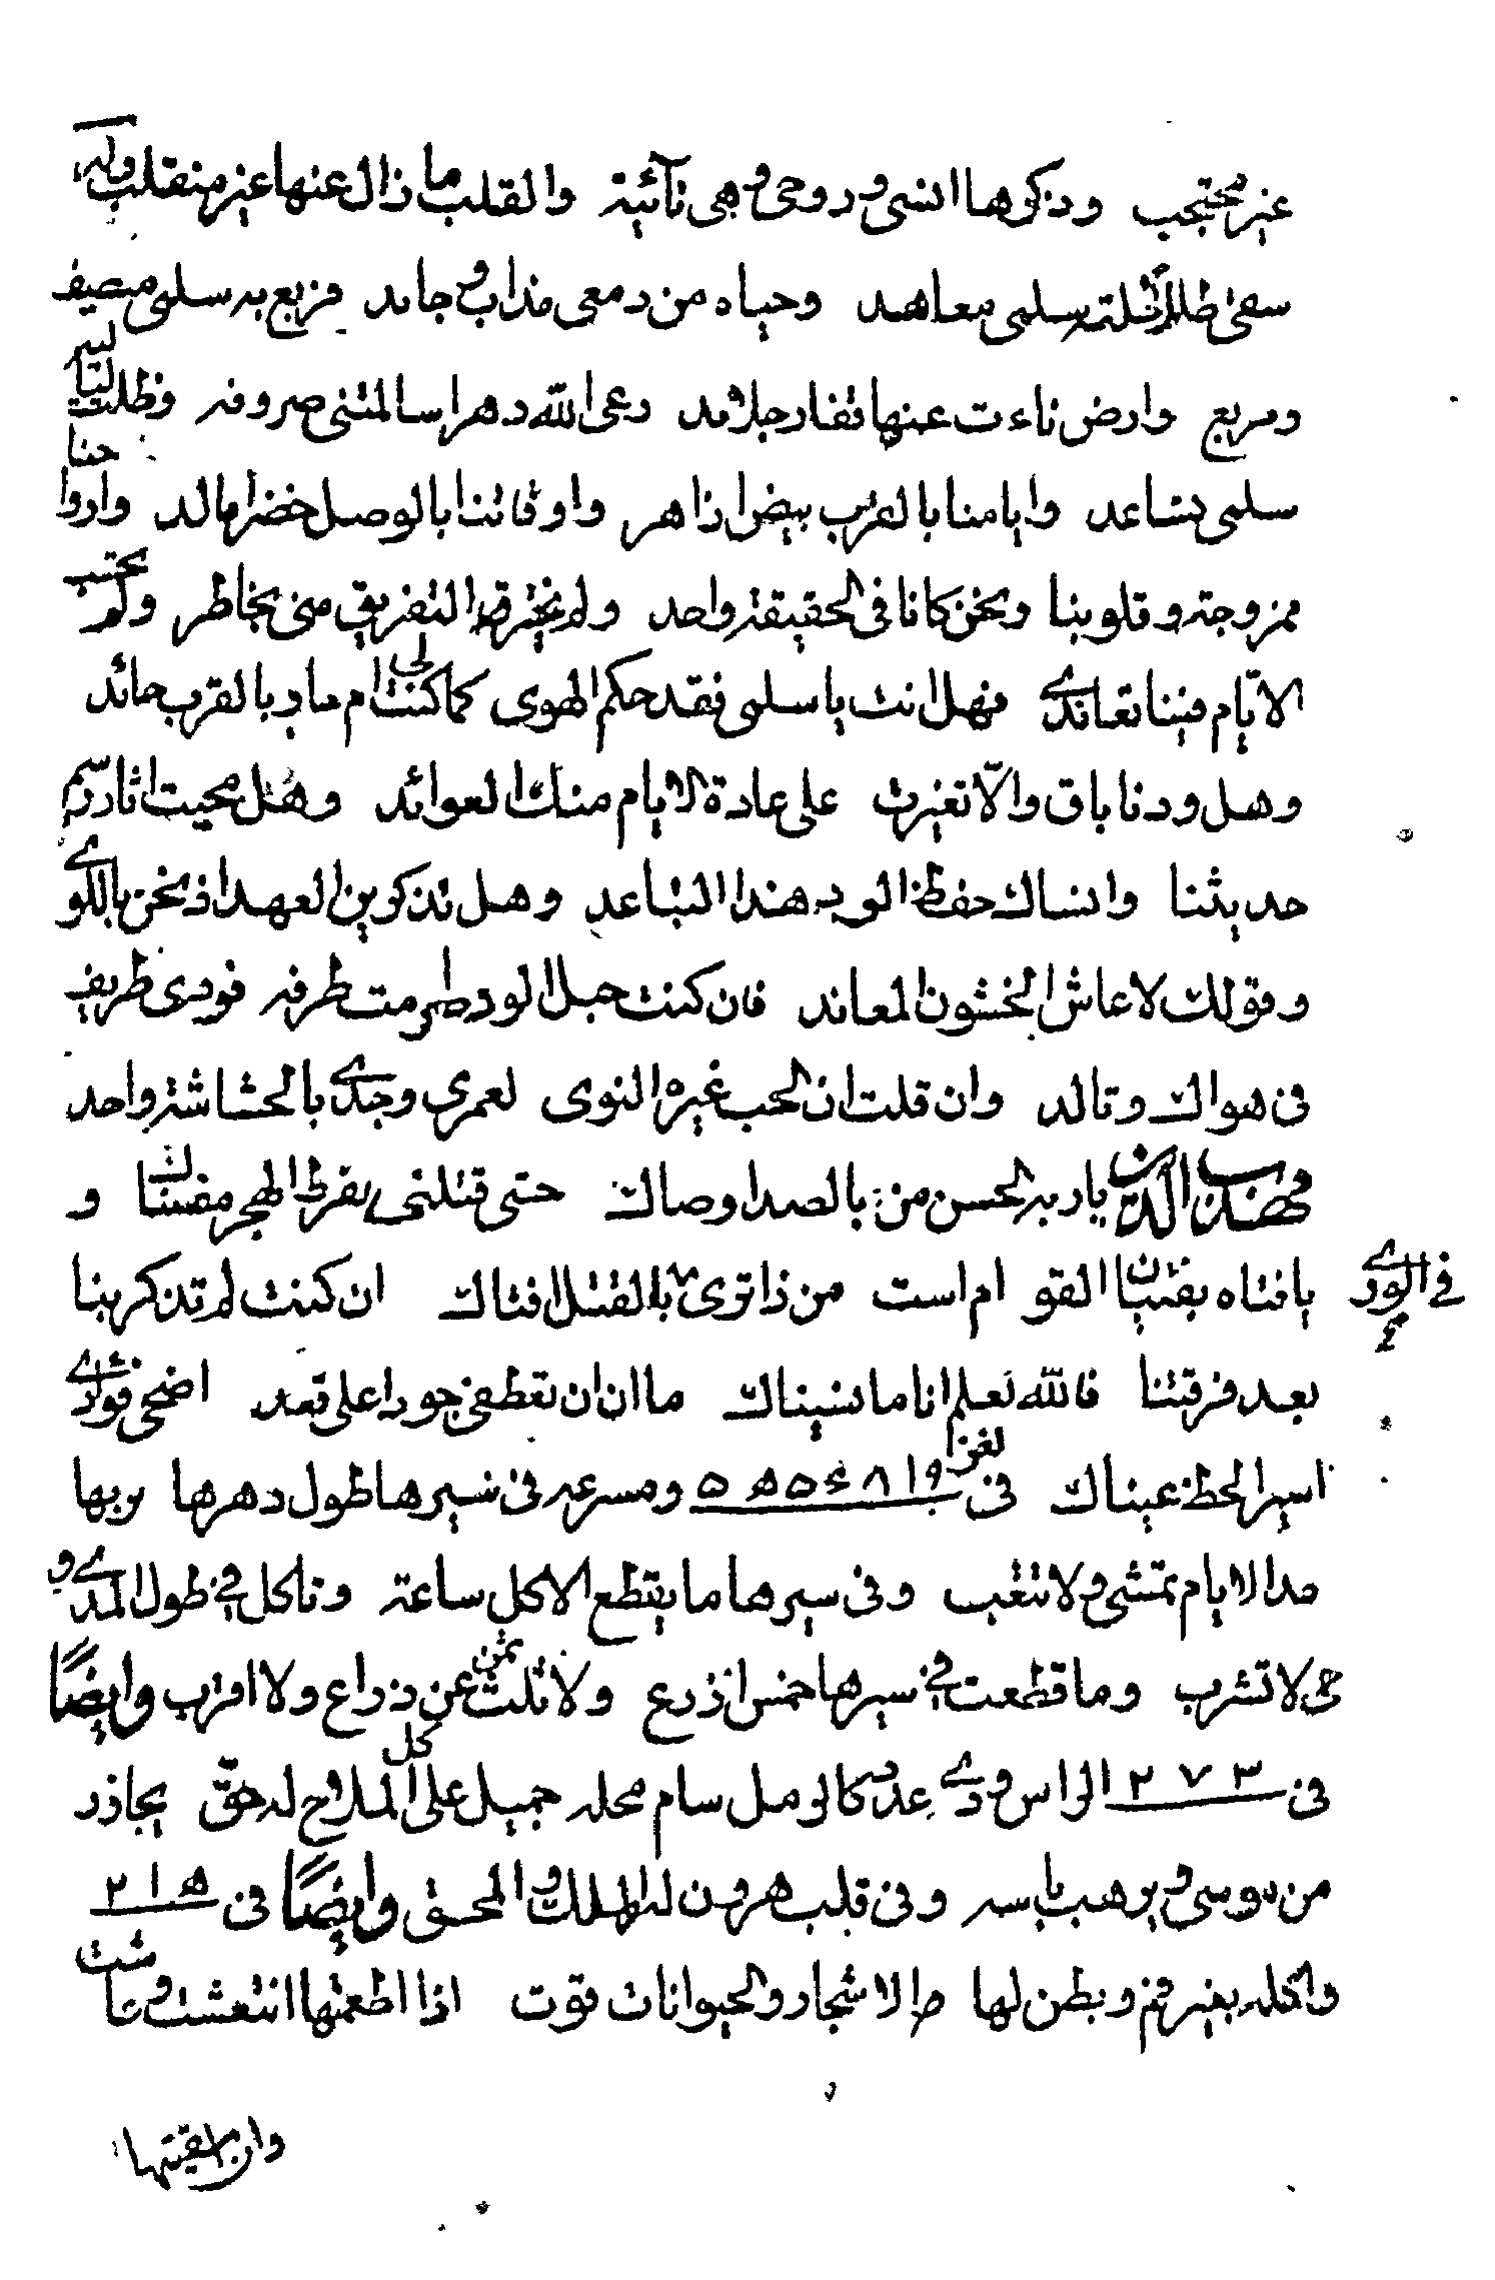 غير محتجب وذكرها انسى وروحى وهى نآئية والقلب ما زال عنها غير منقلب وله
سقى طللا سلمى معاهد وحياه من دمعى مذاب وجامد فربع به سلمى مصيف
ومربع وارض ناءت عنها قفار جلامد رعى الله دهرا سالمتنى صروفه وظلت ليا لينا
سلمى تساعد وايامنا بالقرب بيض ازاهر واوقاتنا بالوصل خضر امالد وارواحنا
ممزوجة وقلوبنا ونحن كانا فى الحقيقة واحد ولم يخترق التفريق منى بخاطر ولم تحتسب
الايّام فينا تعاندى فهل انت ياسلمى فقد حكم الهوى كما كنت لى ام ماد بالقرب حائد
وهل ودنا باق والّا تغيرت على عادة الايام منك العوائد وهل محيت اثار رسم
حديثنا وانساك حفظ الود هذا التباعد وهل تذكرين العهد اذ نحن باللوى
وقولك لا عاش الخشون المعاند فان كنت حبل الود صرمت طرفه فودى طريف
فى هواك وتالد وان قلت ان الحب غيره النوى لعمرى وجدى بالحشاشة واحد
مهذب الدين يا ربة الحسن من بالصد اوصاك حتى قتلنى بفرط الهجر مضناك و
يا فتاه بفتيان القوام است من ذا ترى بالقتل افتاك ان كنت لم تذكرينا
فى الورى
بعد فرقتنا فالله تعلم انا ما نسيناك ما ان ان تعطفى جودا على قعد اضحى فؤادى
اسير الحظ عيناك لغزا فى ومسرعة فى سيرها طول دهرها يريها
مدا الايام تمشى ولا تتعب وفى سيرها ما يقطع الاكل ساعة وتاكل فى طول المدى و
هى لا تشرب وما قطعت فى سيرها خمس اذرع ولا ثلث ثمن عن ذراع ولا اقرب وايضًا
فى ٢٧٣ الراس وذى عدد كالرمل سام محله جميل على كل الملاح له حقّ يحاذر
من موسى ويرهب باسه وفى قلب هرون له الملك والمحق وايضًا فى
واكله بغير فم وبطن لها الاشجار والحيوانات قوت اذا اطعمتها انتعشت وعاشت
وان سقيتها